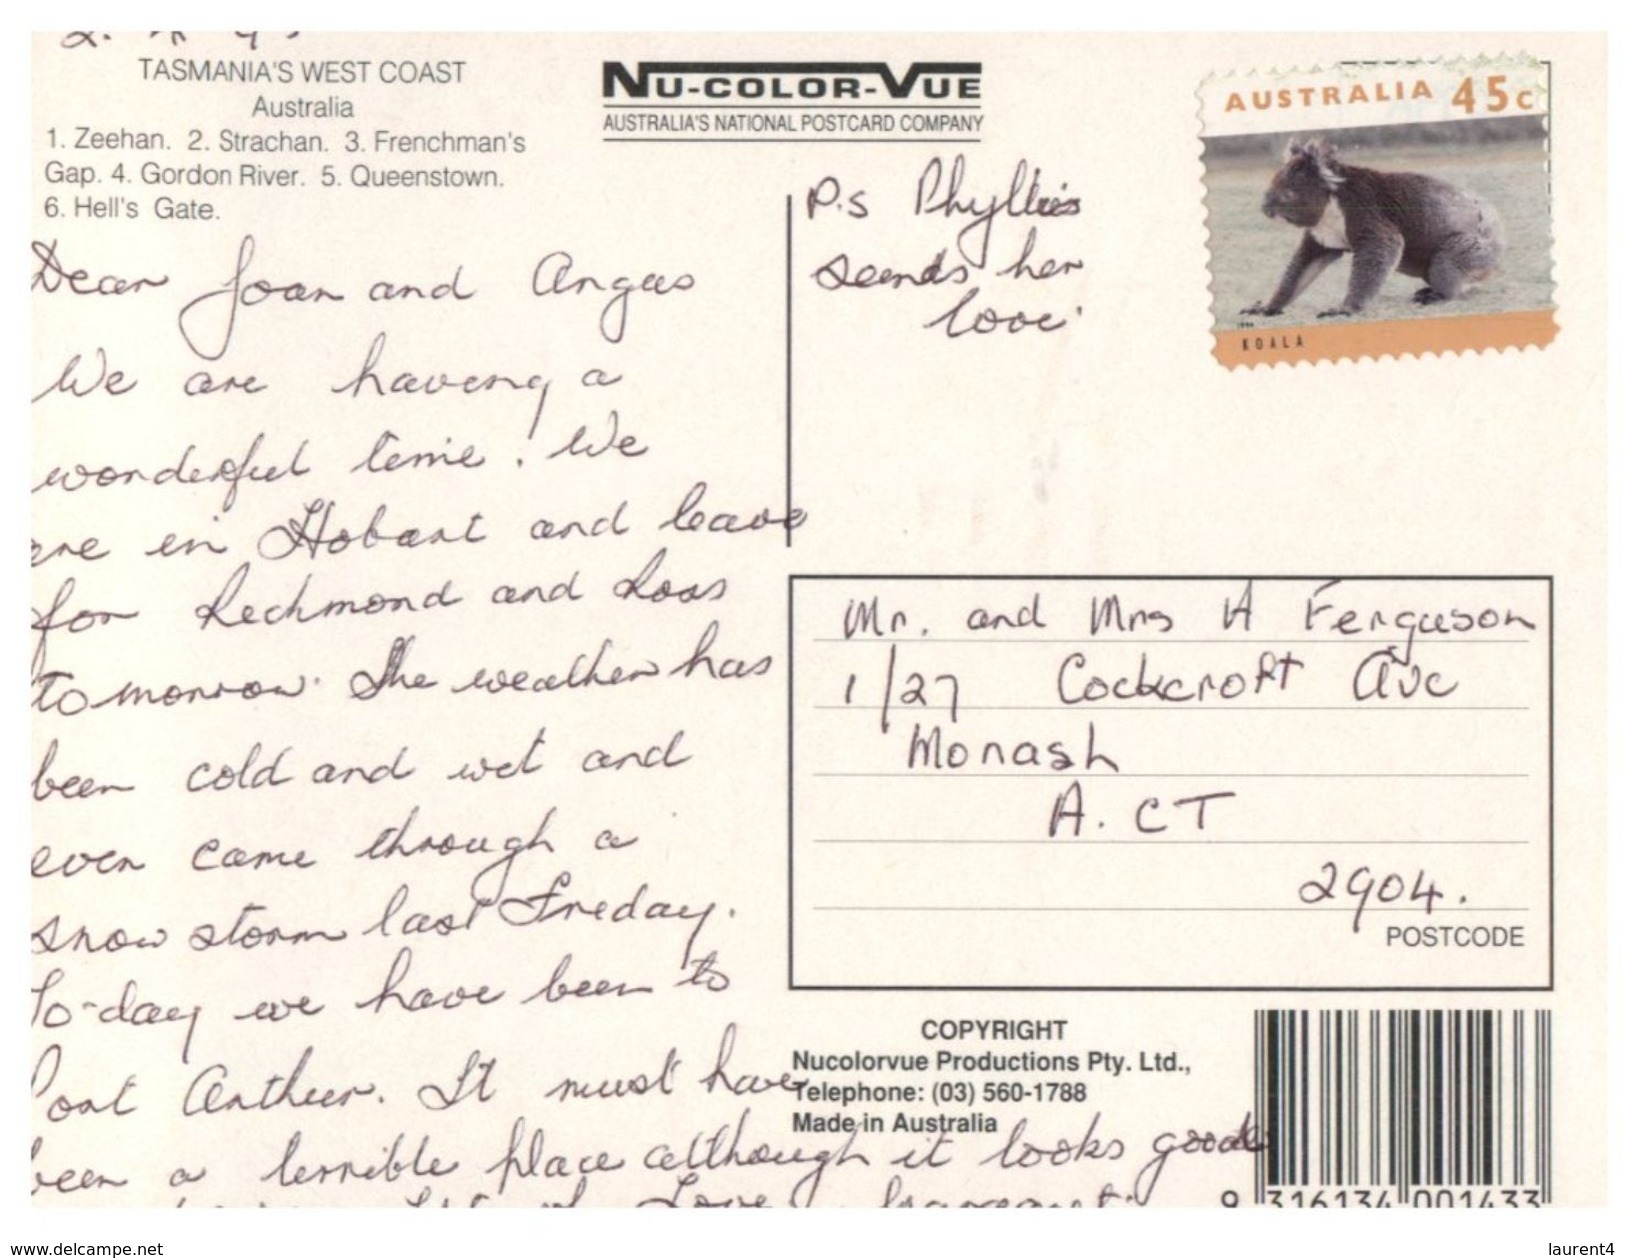 TASMANIA'S WEST COAST
Australia
1. Zeehan. 2. Strachan. 3. Frenchman's
Gap. 4. Gordon River. 5. Queenstown.
6. Hell's Gate.
Dear Joan and Angus
We are having a
wonderful time! We
are in Hobart and leave
for Richmond and Ross
tomorrow. The weather has
been cold and wet and
even came through a
snow storm last Friday.
To-day we have been to
Port Arthur. It must have
been a terrible place although it looks good
Love
NU-COLOR-VUE
AUSTRALIA'S NATIONAL POSTCARD COMPANY
P.S Phyllis
sends her
love.
AUSTRALIA 45c
KOALA
Mr. and Mrs A Ferguson
1/27 Cockcroft Ave
Monash
A.CT
2904.
POSTCODE
COPYRIGHT
Nucolorvue Productions Pty. Ltd.,
Telephone: (03) 560-1788
Made in Australia
9 316134 001433
www.delcampe.net
laurent4